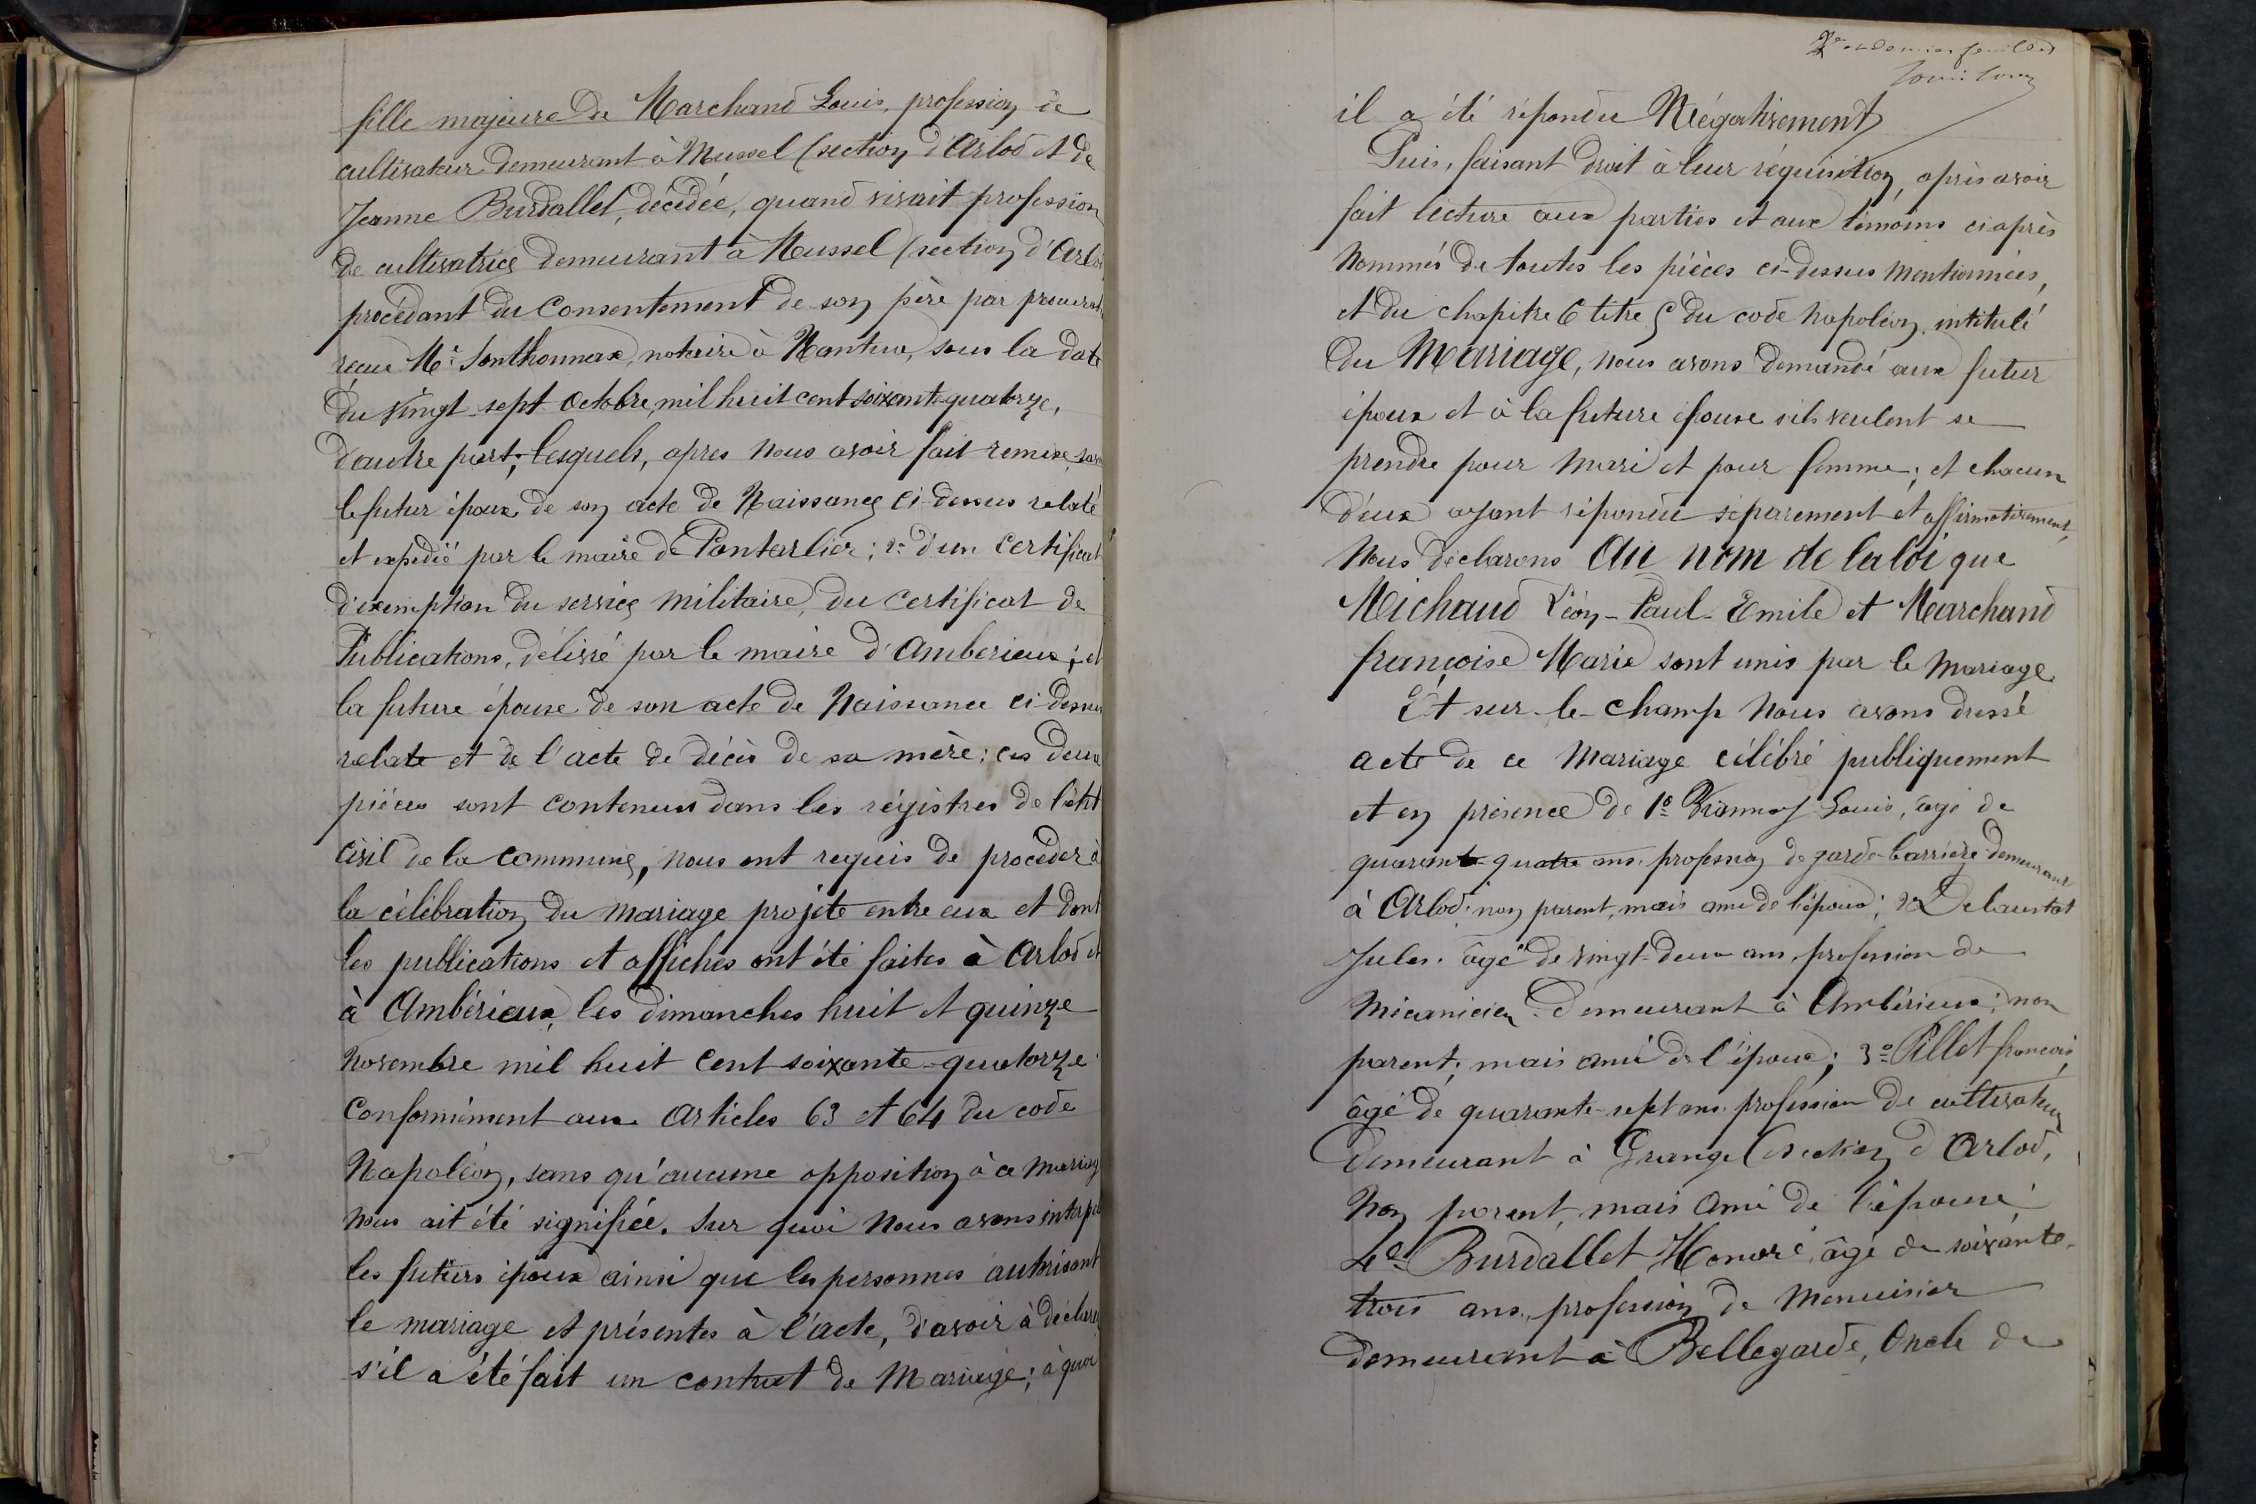 fille majeure de Marchand Louis, profession de
cultivateur demeurant à Mussel (section d'Arlod et de
Jeanne Burdallet, décédée, quand vivait profession
de cultivatrice demeurant à Mussel (section d'Arlod
procédant du Consentement de son père par procurat.
reçue Me Sonthonnax, notaire à Nantua, sous la date
du vingt-sept Octobre, mil huit cent soixante quatorze,
d'autre part; lesquels, apres nous avoir fait remise, savoir
le futur époux de son acte de Naissance ci-dessus relaté
et expedié par le maire de Pontarlier; 2º d'un Certificat
d'exemption du service militaire, du certificat de
Publications, délivré par le maire d'Amberieux; et
la future épouse de son acte de Naissance ci-dessus
relate et de l'acte de décès de sa mère; ces deux
pièces sont contenues dans les régistres de l'état
Civil de la commune, nous ont requis de procéder à
la célébration du mariage projeté entre eux et dont
les publications et affiches ont été faites à Arlod et
à Ambérieux, les dimanches huit et quinze
Novembre mil huit cent soixante-quatorze
Conformément aux Articles 63 et 64 du code
Napoléon, sans qu'aucune opposition à ce mariage
nous ait été signifiée. Sur quoi Nous avons interpel
les futurs époux ainsi que les personnes autorisant
le mariage et présentes à l'acte, d'avoir à déclare
s'il a été fait un contrat de Mariage; à quoi
2e et dernier feuillet
il a été répondu Négativement
Puis, faisant droit à leur réquisition, après avoir
fait lecture aux parties et aux témoins ci après
Nommés de toutes les pièces ci-dessus mentionnées,
et du chapitre 6 titre 5 du code Napoléon, intitulé
du Mariage, nous avons demandé aux futur
époux et à la future épouse s'ils veulent se
prendre pour mari et pour femme; et chacun
d'eux ayant répondu séparement et affirmativement,
Nous déclarons Au nom de la loi que
Michaud Léon-Paul-Emile et Marchand
françoise Marie sont unis par le mariage
Et sur-le-champ Nous avons dressé
acte de ce mariage célébré publiquement
et en présence de 1º Louis, âgé de
quarante-quatre ans, profession de garde-barrière demeurant
à Arlod; non parent, mais ami de l'époux; 2º Delaustat
Jules, âgé de vingt-deux ans, profession de
mécanicien demeurant à Ambérieux; non
parent, mais ami de l'époux; 3º Pillet françois,
âgé de quarante-sept ans, profession de cultivateur
demeurant à Grange (section d'Arlod,
Non parent, mais ami de l'épouse;
4º Burdallet Honoré, âgé de soixante-
trois ans, profession de Menuisier
demeurant à Bellegarde, Oncle de